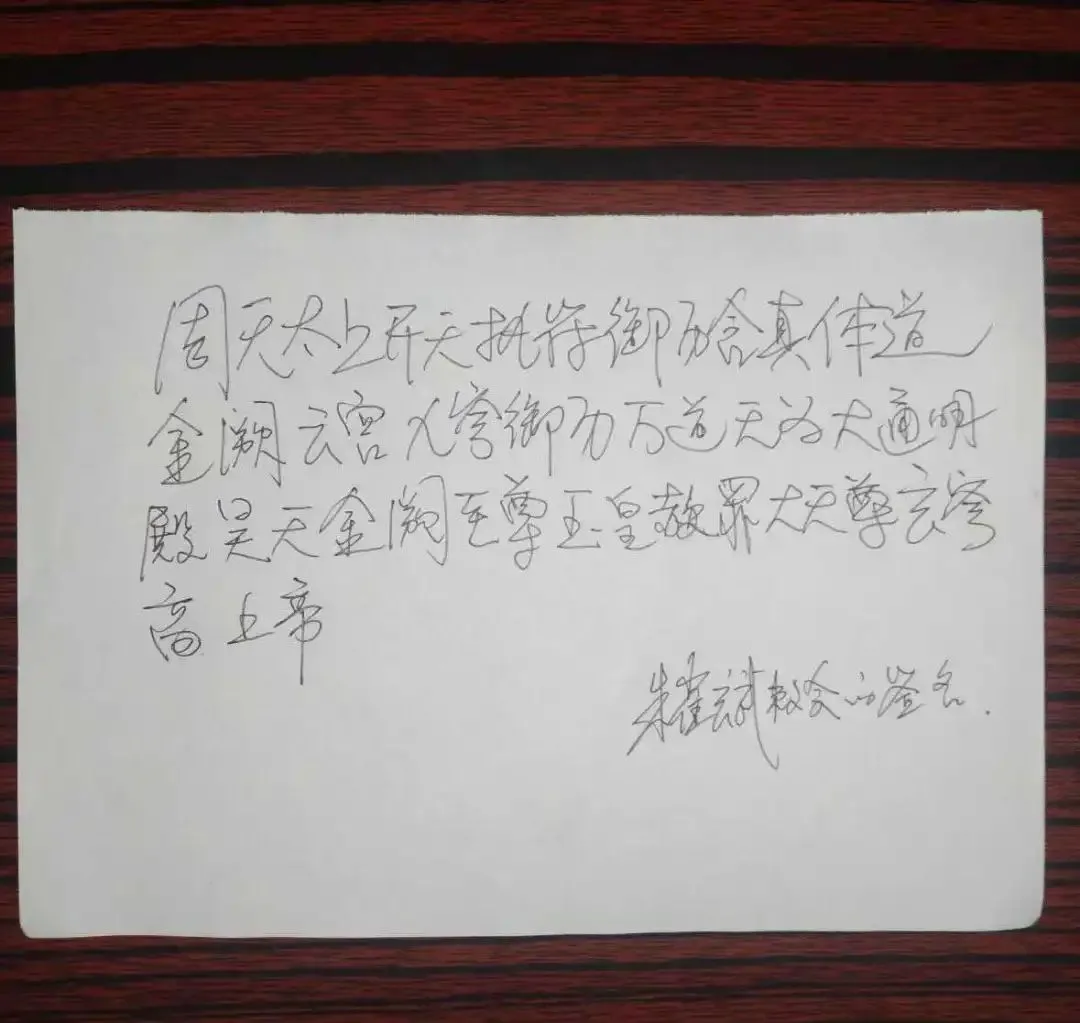 周天太上开天执符御历含真体道
金阙云宫九穹御历万道无为大通明
殿昊天金阙至尊玉皇赦罪大天尊玄穹
高上帝
朱 签名.